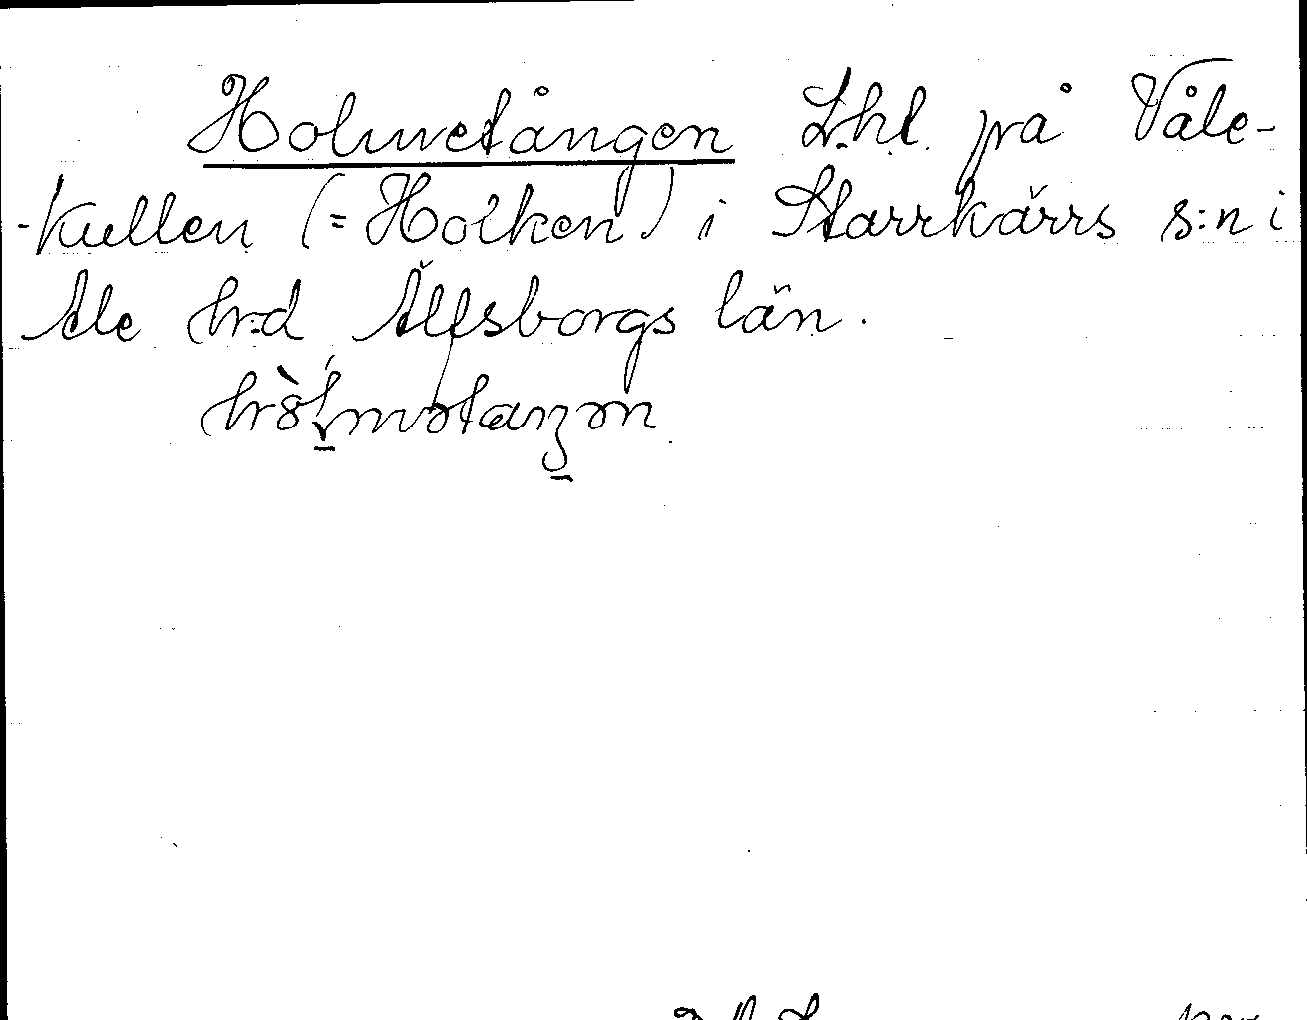 Holmetången L.hl. på Våle-
-kullen (=Holken) i Starrkärrs s:n i
Ale hrd, Älfsborgs län.